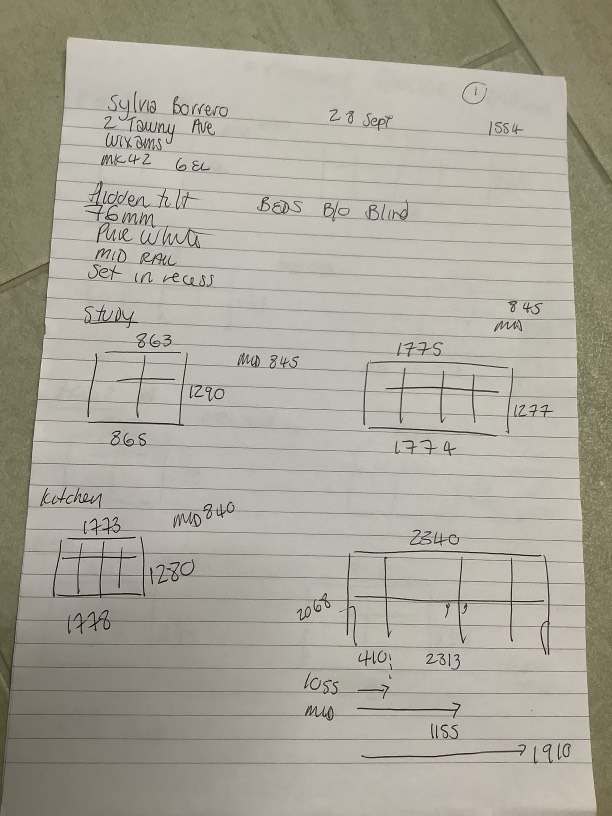 1
Sylvia Borrero
28 Sept
1554
2 Tawny Ave
Wixams
MK42 6EL
Hidden tilt
BEDS B/O Blind
76mm
Pure White
MID RAIL
Set in recess
Study
863
MID 845
1290
865
845
MID
1775
1277
1774
Kitchen
1773
MID 840
1280
1778
2340
2068
410
2313
MID
1155
1910